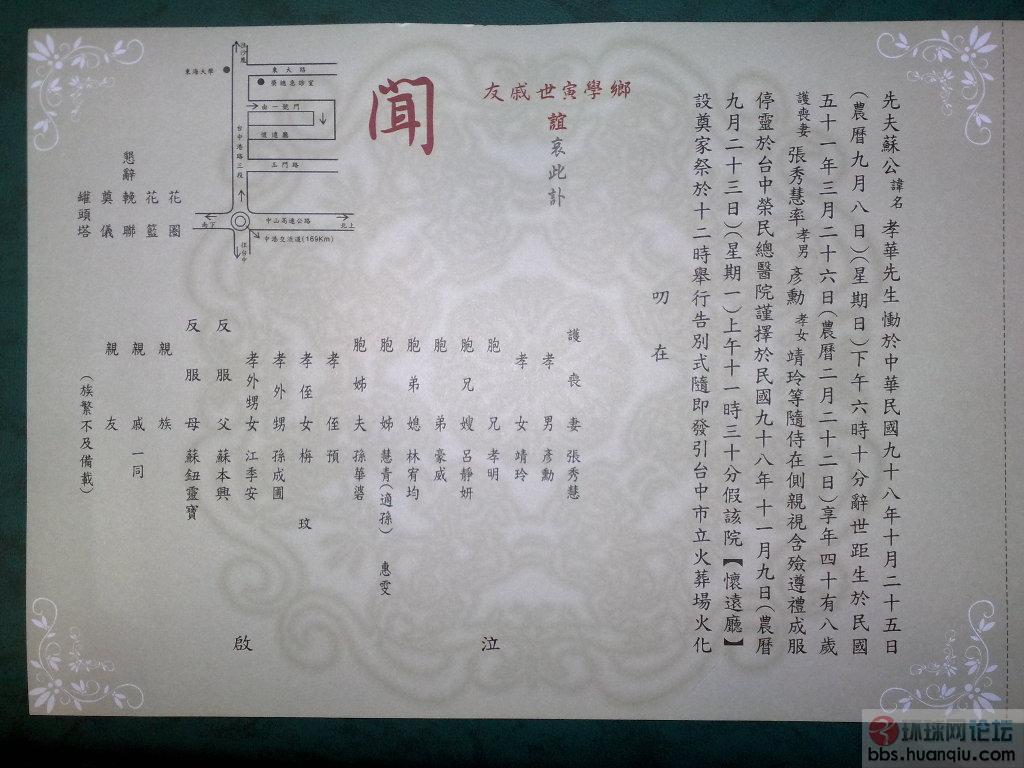 先夫蘇公諱名孝華先生慟於中華民國九十八年十月二十五日
(農曆九月八日)(星期日)下午六時十分辭世距生於民國
五十一年三月二十六日(農曆二月二十二日)享年四十有八歲
護喪妻張秀慧率孝男彥勳孝女靖玲等隨侍在側親視含殮遵禮成服
停靈於台中榮民總醫院謹擇於民國九十八年十一月九日(農曆
九月二十三日)(星期一)上午十一時三十分假該院【懷遠廳】
設奠家祭於十二時舉行告別式隨即發引台中市立火葬場火化
叨在
鄉學寅世戚友
誼哀此訃
聞
護喪妻張秀慧
孝男彥勳
孝女靖玲
胞兄孝明
胞兄嫂呂靜妍
胞弟豪威
胞弟媳林宥均
胞姊慧青(適孫) 惠雯
胞姊夫孫華
孝侄預
孝侄女栴 玟
孝外甥孫成圃
孝外甥女江季安
反服父蘇本興
反服母蘇鈕靈寶
親族
親戚一同
親友
(族繁不及備載)
泣
啟
懇辭
花圈
花籃
輓聯
奠儀
罐頭塔
往沙鹿
東海大學
東大路
榮總急診室
由一號門
懷遠廳
正門路
台中港路三段
中山高速公路
南下
北上
中港交流道(169Km)
往台中
环球网论坛
bbs.huanqiu.com